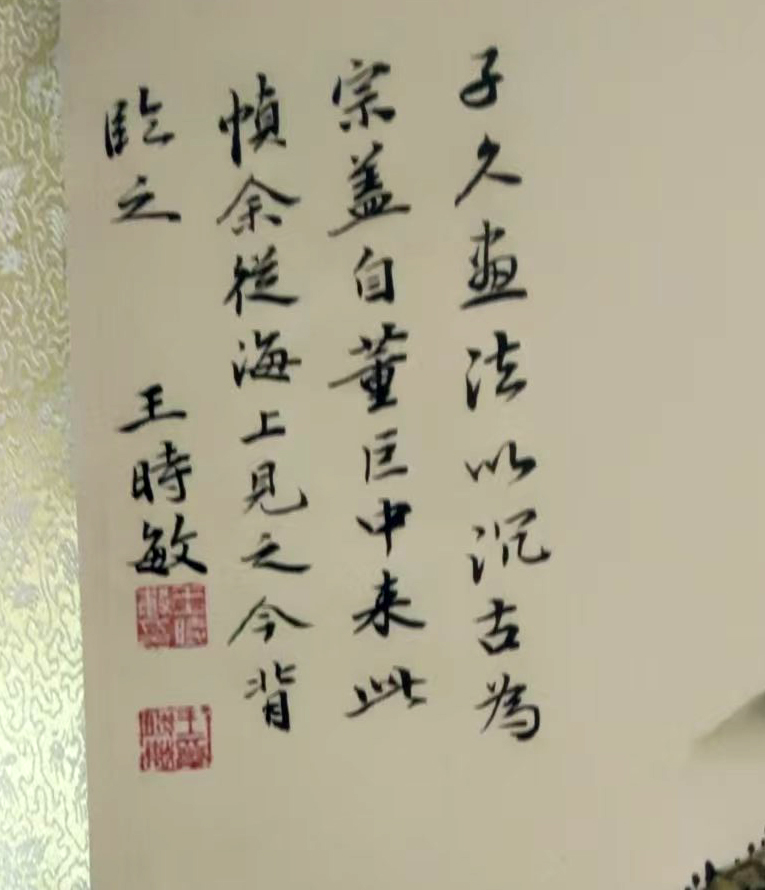 子久畫法以沉古為
宗蓋自董巨中来此
幀余從海上見之今背
臨之
王時敏